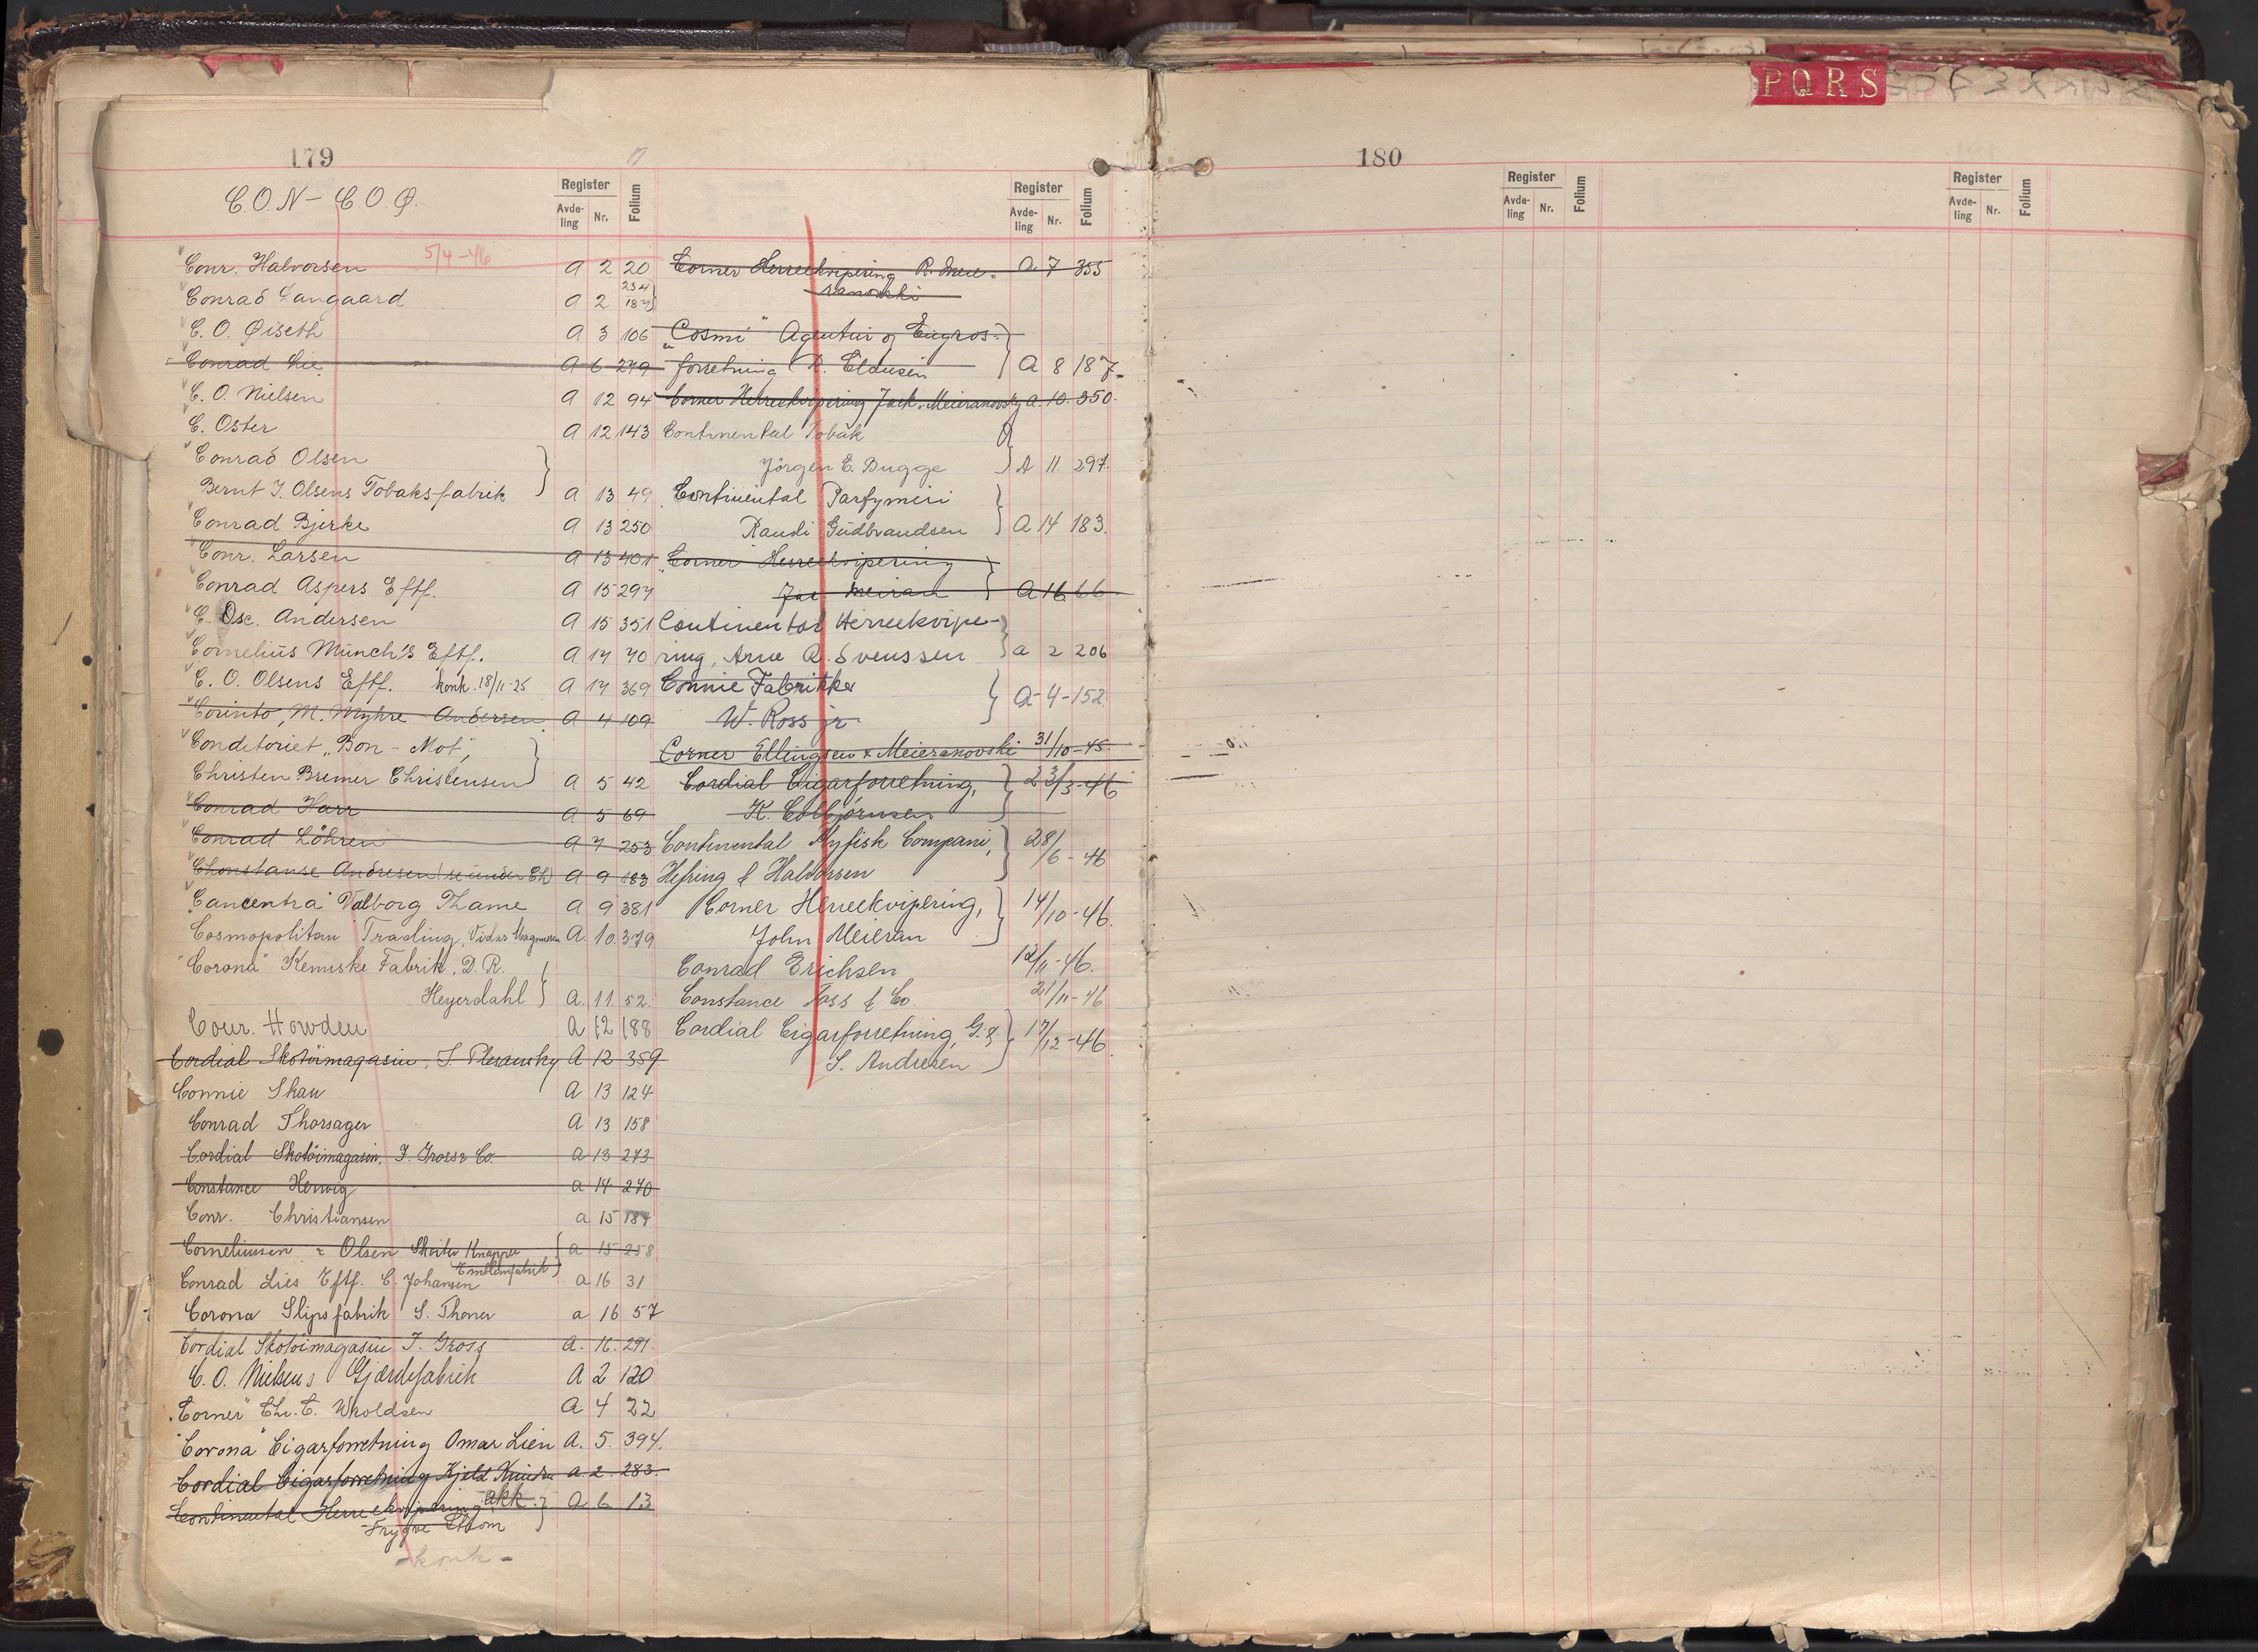 PQRS
179
C.O.N – C.O.Q.
Register
Avde-
ling
Nr.
Folium
5/4-46
Conr. Halvorsen A 2 20
Conrad Langaard A 2 187
234
C. O. Øiseth A 3 106
Conrad Lie A 6 279
C. O. Nielsen A 12 94
C. Oster A 12 143
Conrad Olsen
Bernt J. Olsens Tobaksfabrik } A 13 49
Conrad Bjerke A 13 250
Conr. Larsen A 13 401
Conrad Aspers Eftf. A 15 297
C. Osc. Andersen A 15 351
Cornelius Münch's Eftf. A 17 70
C. O. Olsens Eftf. konk. 18/11-25 A 17 369
Corinto, M. Myhre Andersen A 4 109
Conditoriet „Bon-Mot",
Christen Bremer Christensen } A 5 42
Conrad Harr A 5 69
Conrad Löhren A 7 253
Chonstanse Andresen (se under Ch) A 9 183
"Cancentra" Valborg Thame A 9 381
Cosmopolitan Trading, Vidar Magnussen A. 10. 379
"Corona" Kemiske Fabrik. D. R.
Heyerdahl } A. 11. 52.
Cour. Howden A 12 188
Cordial Skotöimagasin, J. Plesansky A 12 359.
Connie Skau A 13 124
Conrad Thorsager A 13 158
Cordial Skotöimagasin. J. Gross & Co. A 13 273
Constance Herwig a 14 270
Conr. Christiansen a 15 184
Corneliussen & Olsen Skilte Knappe
Emblemfabrik } a 15 258
Conrad Lies Eftf. C. Johansen a 16 31
Corona Slipsfabrik S. Thoner a 16 57
Cordial Skotöimagasin J. Gross A. 16. 291.
C. O. Nielsens Gjærdefabrik A 2 120
„Corner" Chr. C. Wroldsen A 4 22
"Corona" Cigarforretning Omar Lien A. 5. 394.
Cordial Cigarforretning Kjeld a. 2. 283.
Continental Herreekvipering akk. } A 6 13
Trygve
- konk -
Register
Avde-
ling
Nr.
Folium
Corner Herreekvipering R. Meie- A. 7 355
ranovski
„Cosmi" Agentur og Engros-
forretning R. Eldusen } A 8 187.
Corner Herreekvipering Jack. Meieranovsky A. 10. 350.
Continental Tobak
Jörgen E. Bugge } A 11 297.
Continental Parfymeri
Randi Gudbrandsen } A 14 183.
"Corner Herreekvipering
Jac Meiran } A 16 66
Continental Herreekvipe-
ring, Arne R. Svenssen } a 2 206
Connie Fabrikker
W. Ross jr. } A-4-152
Corner Ellingsen & Meieranovski 31/10-45.
Cordial Cigarforretning,
K. Colbjørnsen } 23/3-46
Continental Nyfisk Compani,
Hefring & Halvorsen } 28/6-46
Corner Herreekvipering,
John Meieran } 14/10-46.
Conrad Erichsen 12/11-46.
Constance Foss & Co. 21/11-46
Cordial Cigarforretning, G. &
S. Andresen } 17/12-46.
180
Register
Avde-
ling
Nr.
Folium
Register
Avde-
ling
Nr.
Folium